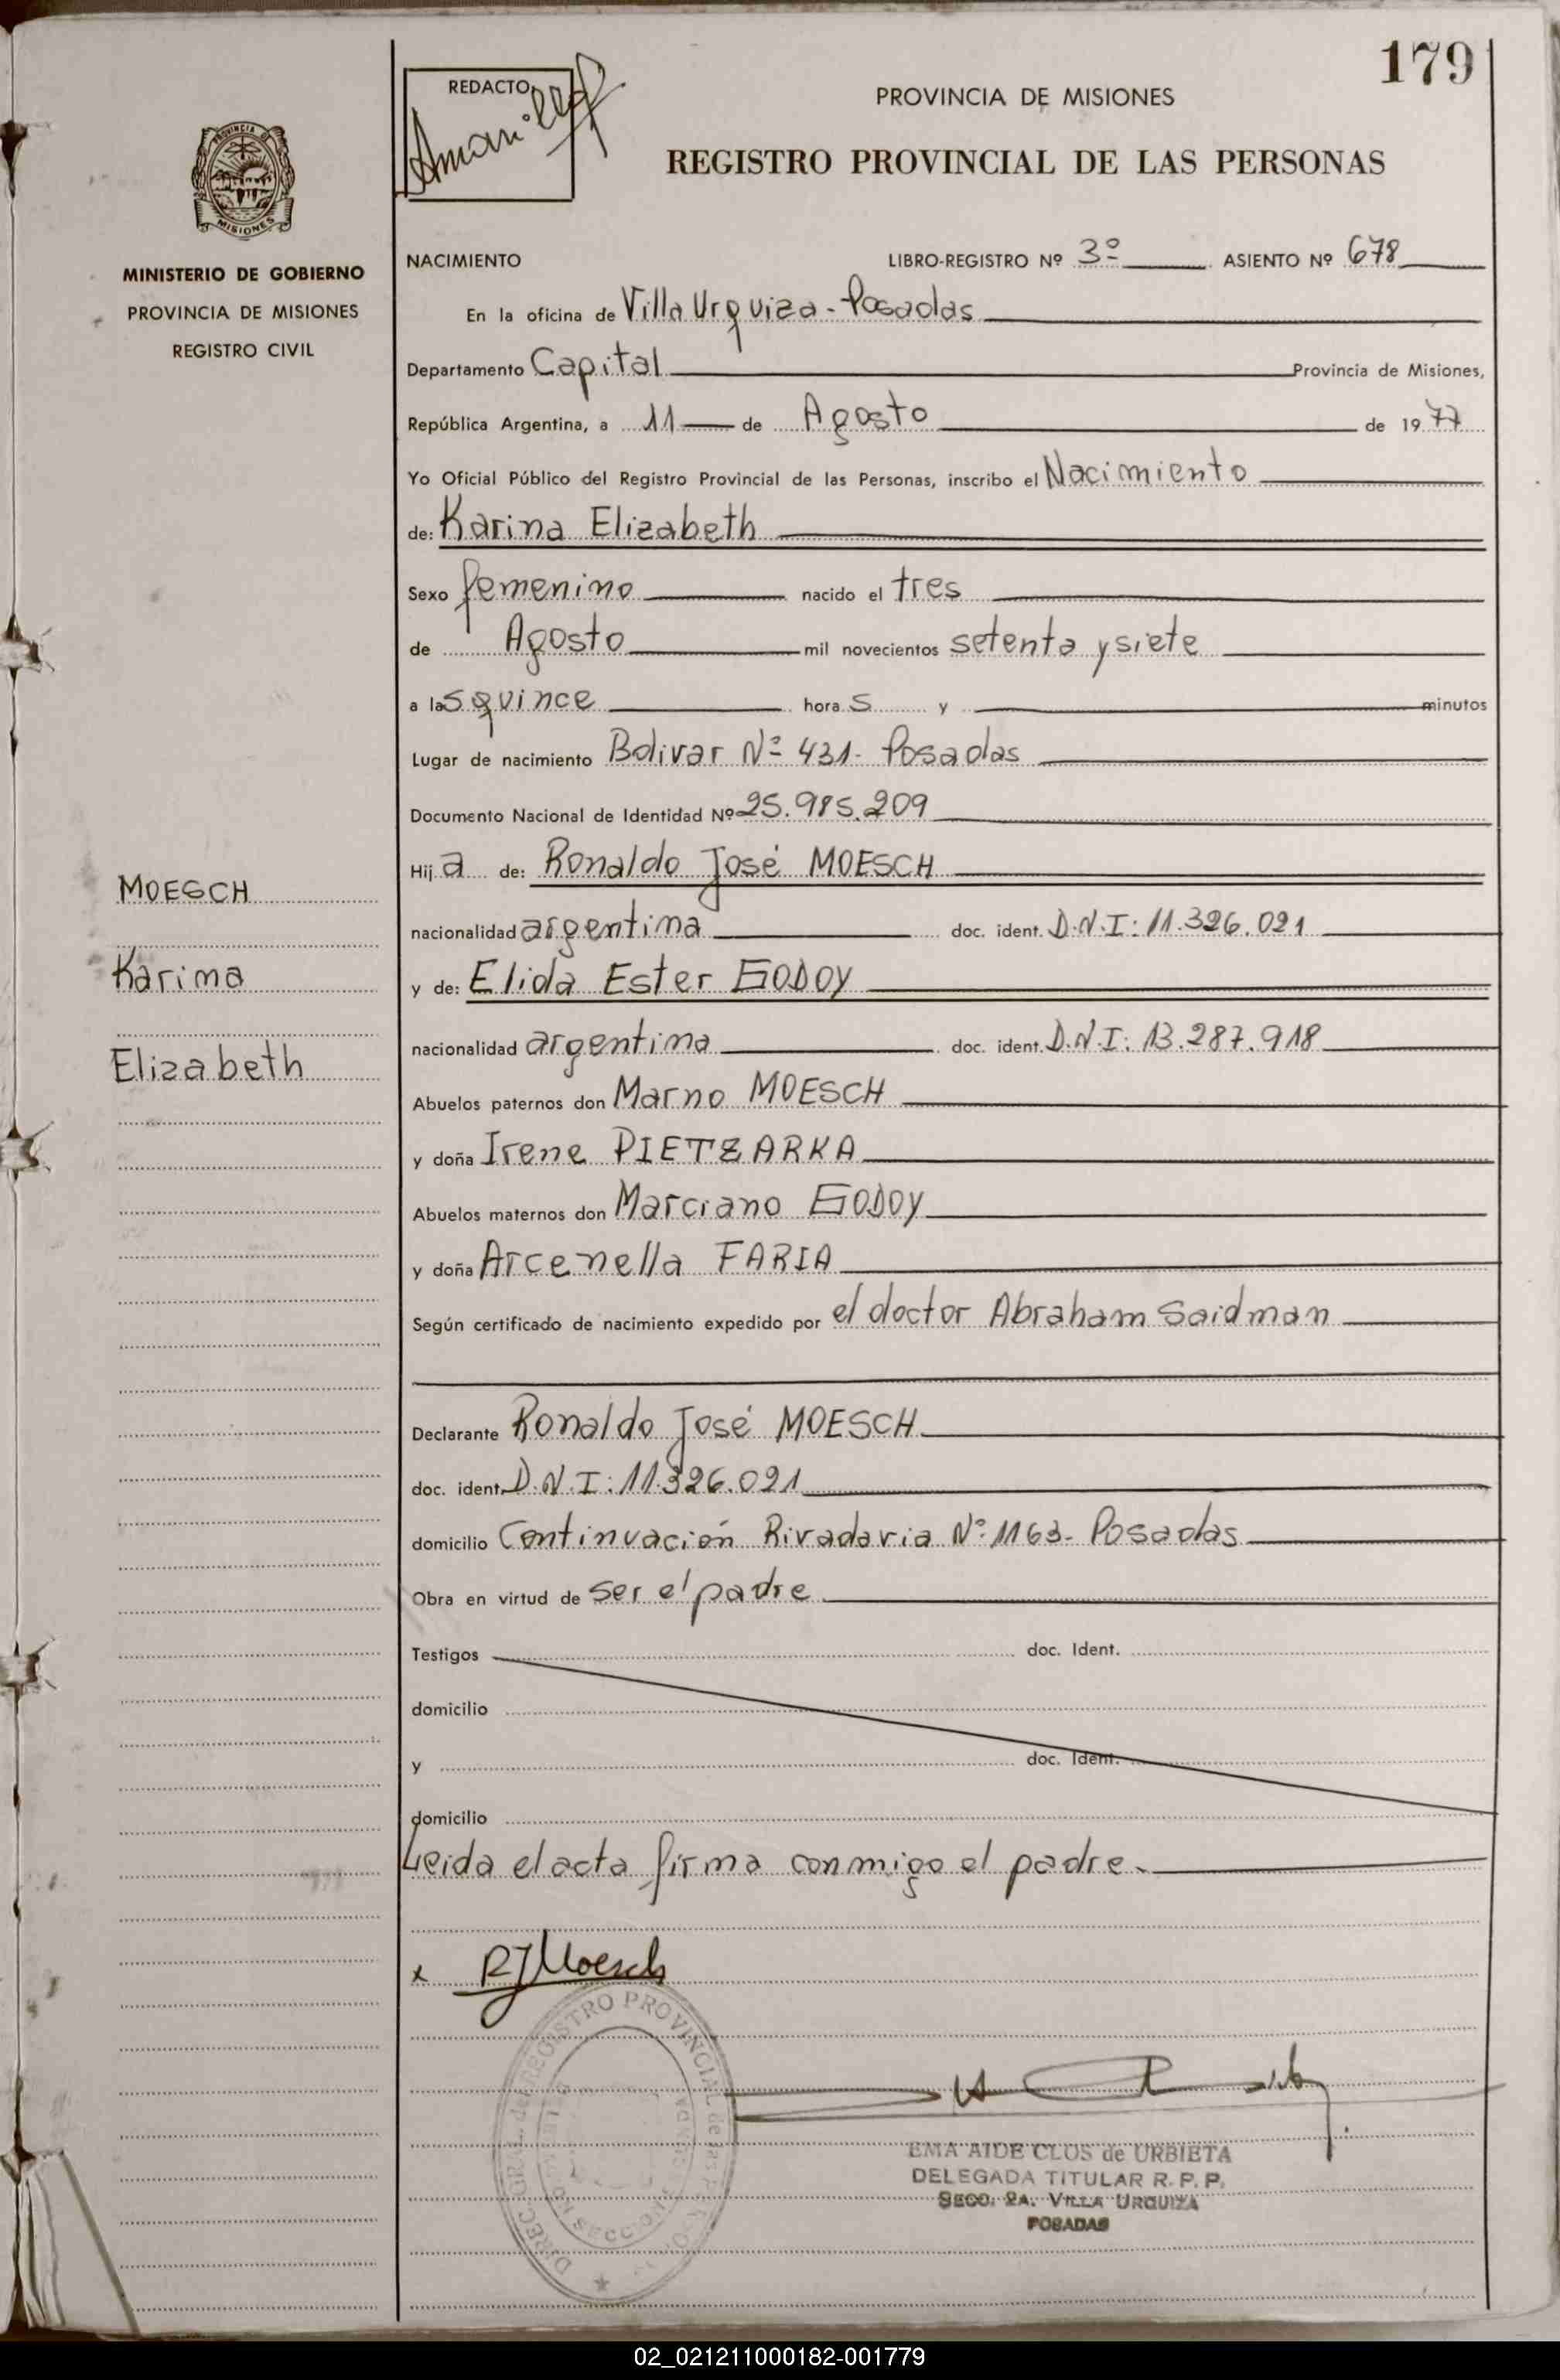 179
REDACTO
PROVINCIA DE MISIONES
REGISTRO PROVINCIAL DE LAS PERSONAS
PROVINCIA DE
MISIONES
MINISTERIO DE GOBIERNO
PROVINCIA DE MISIONES
REGISTRO CIVIL
NACIMIENTO LIBRO-REGISTRO Nº 3º ASIENTO Nº 678
En la oficina de Villa Urquiza - Posadas
Departamento Capital Provincia de Misiones,
República Argentina, a 11 de Agosto de 1977
Yo Oficial Público del Registro Provincial de las Personas, inscribo el Nacimiento
de: Karina Elizabeth
Sexo femenino nacido el tres
de Agosto mil novecientos setenta y siete
a las quince horas y minutos
Lugar de nacimiento Bolivar Nº 431- Posadas
Documento Nacional de Identidad Nº 25.985.209
Hija de: Ronaldo José MOESCH
nacionalidad argentina doc. ident. D.N.I: 11.326.021
y de: Elida Ester GODOY
nacionalidad argentina doc. ident. D.N.I: 13.287.918
Abuelos paternos don Marno MOESCH
y doña Irene PIETZARKA
Abuelos maternos don Marciano GODOY
y doña Arcenella FARIA
Según certificado de nacimiento expedido por el doctor Abraham Saidman
Declarante Ronaldo José MOESCH
doc. ident. D.N.I: 11.326.021
domicilio Continuación Rivadavia Nº 1163- Posadas
Obra en virtud de ser el padre
Testigos doc. Ident.
domicilio
y doc. Ident.
domicilio
Leida el acta firma conmigo el padre.
MOESCH
Karina
Elizabeth
x RJMoesch
EMA AIDE CLOS de URBIETA
DELEGADA TITULAR R. P. P.
SECC. 2A. VILLA URQUIZA
POSADAS
02_021211000182-001779